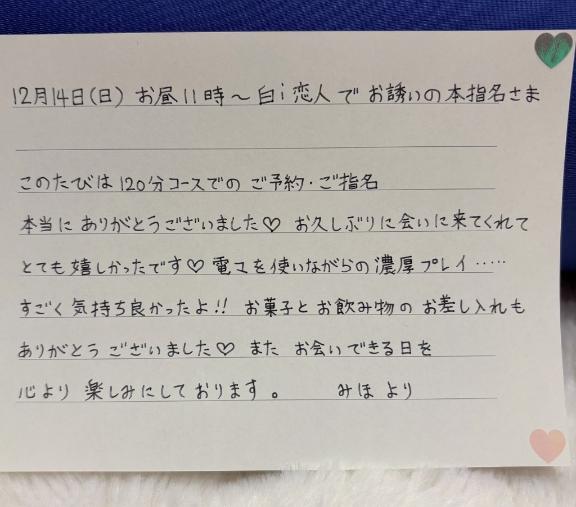 12月14日(日) お昼11時～白i恋人でお誘いの本指名さま
このたびは120分コースでのご予約・ご指名
本当にありがとうございました♡ お久しぶりに会いに来てくれて
とても嬉しかったです♡電マを使いながらの濃厚プレイ……
すごく気持ち良かったよ!! お菓子とお飲み物のお差し入れも
ありがとうございました♡ また お会いできる日を
心より楽しみにしております。 みほより